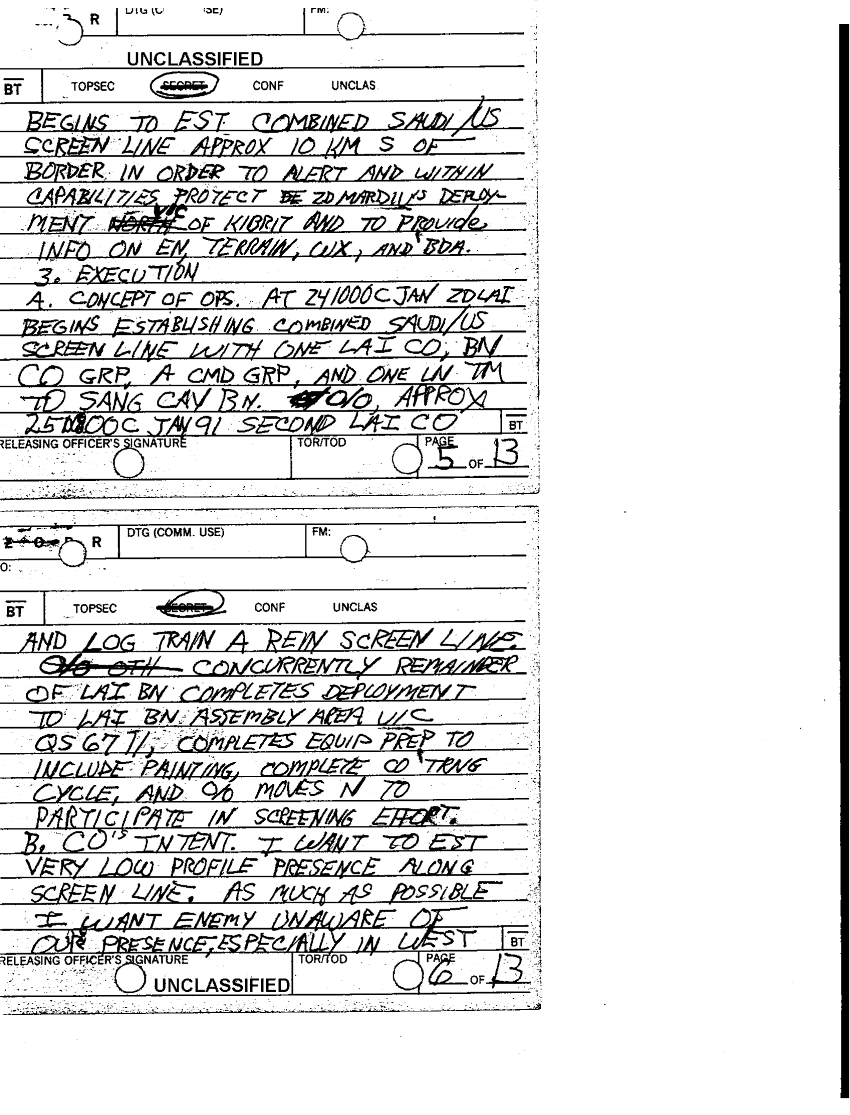 R DTG (C USE) FM:
UNCLASSIFIED
BT TOPSEC SECRET CONF UNCLAS
BEGINS TO EST COMBINED SAUDI/US
SCREEN LINE APPROX 10 KM S OF
BORDER IN ORDER TO ALERT AND WITHIN
CAPABILITIES PROTECT 2D MARDIV'S DEPLOY-
MENT NORTH VIC OF KIBRIT AND TO PROVIDE
INFO ON EN, TERRAIN, WX, AND BDA.
3. EXECUTION
A. CONCEPT OF OPS. AT 241000C JAN 2D LAI
BEGINS ESTABLISHING COMBINED SAUDI/US
SCREEN LINE WITH ONE LAI CO, BN
CO GRP, A CMD GRP, AND ONE LN TM
TO SANG CAV BN. O/O, APPROX
JAN 91 SECOND LAI CO BT
RELEASING OFFICER'S SIGNATURE TOR/TOD PAGE
5 OF 13
R DTG (COMM. USE) FM:
O:
BT TOPSEC SECRET CONF UNCLAS
AND LOG TRAIN A REIN SCREEN LINE.
O/O OTH CONCURRENTLY REMAINDER
OF LAI BN COMPLETES DEPLOYMENT
TO LAI BN ASSEMBLY AREA VIC
QS 6771, COMPLETES EQUIP PREP TO
INCLUDE PAINTING, COMPLETE CO TRNG
CYCLE, AND O/O MOVES N TO
PARTICIPATE IN SCREENING EFFORT.
B. CO'S INTENT. I WANT TO EST
VERY LOW PROFILE PRESENCE ALONG
SCREEN LINE. AS MUCH AS POSSIBLE
I WANT ENEMY UNAWARE OF
OUR PRESENCE, ESPECIALLY IN WEST BT
RELEASING OFFICER'S SIGNATURE TOR/TOD PAGE
UNCLASSIFIED 6 OF 13